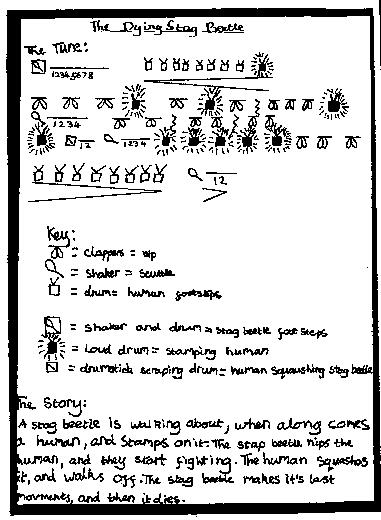 The Dying Stag Beetle
The Tune:
12345678
1234
12 1234
12
Key:
= clappers = nip
= shaker = scuttle
= drum= human footsteps
= shaker and drum = stag beetle footsteps
= Loud drum = stamping human
= drumstick scraping drum = human squashing stag beetle
The Story:
A stag beetle is walking about, when along comes
a human, and stamps on it. The stag beetle nips the
human, and they start fighting. The human squashes
it, and walks off. The stag beetle makes it's last
movments, and then it dies.